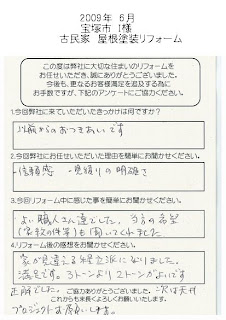 2009年 6月
宝塚市 I様
古民家 屋根塗装リフォーム
この度は弊社に大切な住まいのリフォームを
お任せいただき、誠にありがとうございました。
今後も、更なるお客様満足を追及する為に
お手数ですが、下記のアンケートにご協力ください。
1.今回弊社に来ていただいたきっかけは何ですか?
以前からのおつきあいです
2.今回弊社にお任せいただいた理由を簡単にお聞かせください。
・信頼感 ・見積りの明確さ
3.今回リフォーム中に感じた事を簡単にお聞かせください。
よい職人さん達でした。
も聞いてくれました
4.リフォーム後の感想をお聞かせください。
家が見違える程立派になりました。
満足です。3トーンより2トーンがよいです
正解でした。 ご協力ありがとうございました。 次は
これからも末長くよろしくお願いいたします。
プロジェクトお願いします。